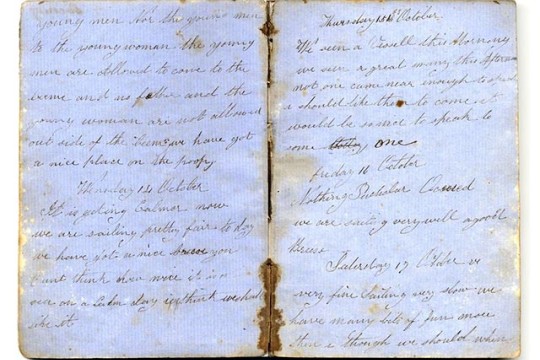 young men Nor the young men
to the young woman the young
men are allowed to come to the
and no father and the
young woman are not allowed
out side of the we have got
a nice place on the poopy
14 October
It is geting Calmer now
we are sailing pretty fair to day
we have got a nice you
cant think how nice it is
on a Calm day we think we shall
like it
Thursday 15th October
We seen a this Morning
we seen a great many this Afternoon
not one came near enough to
I should like them to come it
would be to speak to
some one
friday 16 October
Nothing Occured
we are sailing very well a good
Breese
Saterday 17 October
very fine Sailing very slow we
have many bits of fun more
than I though we should when